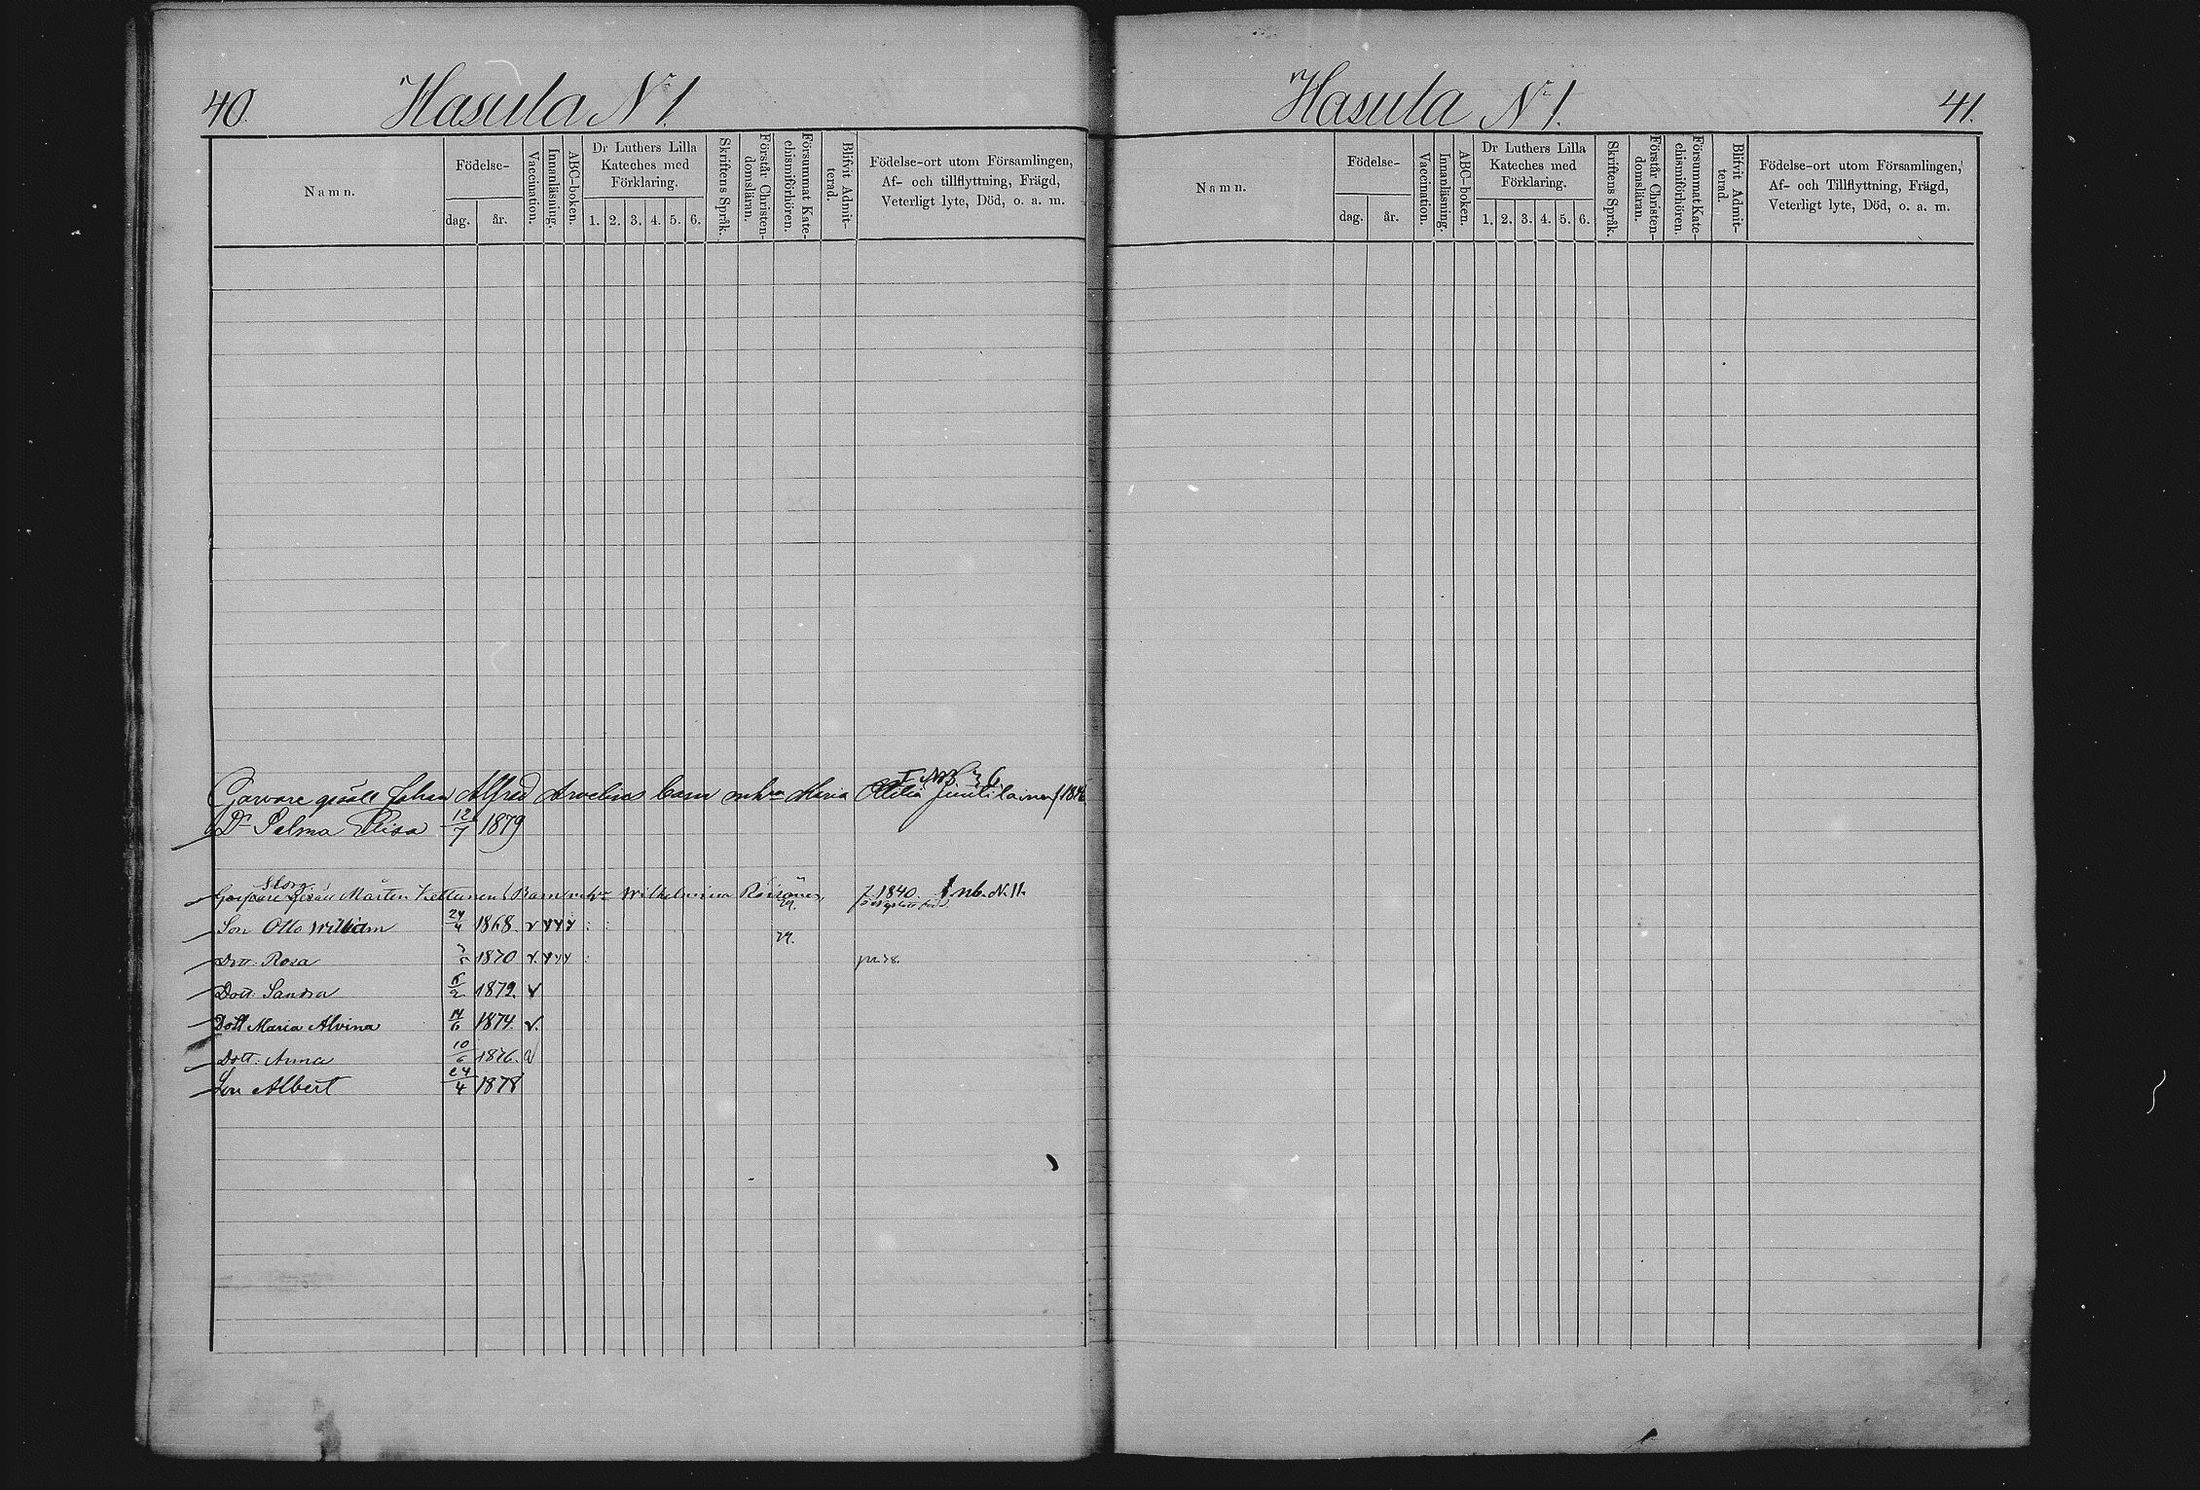 40.
Hasula Nr 1.
Namn.
Födelse-
dag. år.
Vaccination.
Innanläsning.
ABC-boken.
Dr Luthers Lilla
Kateches med
Förklaring.
1. 2. 3. 4. 5. 6.
Skriftens Språk.
Förstår Christen-
domsläran.
Försummat Kate-
chismiförhören.
Blifvit Admit-
terad.
Födelse-ort utom Församlingen,
Af- och tillflyttning, Frägd,
Veterligt lyte, Död, o. a. m.
Garvare Johan Alfred Arvelius barn Maria Otilia
Dr Selma Elisa 12/7 1879
Mårten Barn Wilhelmina f. 1840. nb. N. 11.
Son Otto William 24/4 1868
Dott: Rosa 1870
Dott: Sandra 1872.
Dott Maria Alvina 14/6 1874
Dott: Anna 10/6 1876
Son Albert 24/4 1878
Hasula Nr 1.
41.
Namn.
Födelse-
dag. år.
Vaccination.
Innanläsning.
ABC-boken.
Dr Luthers Lilla
Kateches med
Förklaring.
1. 2. 3. 4. 5. 6.
Skriftens Språk.
Förstår Christen-
domsläran.
Försummat Kate-
chismiförhören.
Blifvit Admit-
terad.
Födelse-ort utom Församlingen,
Af- och Tillflyttning, Frägd,
Veterligt lyte, Död, o. a. m.